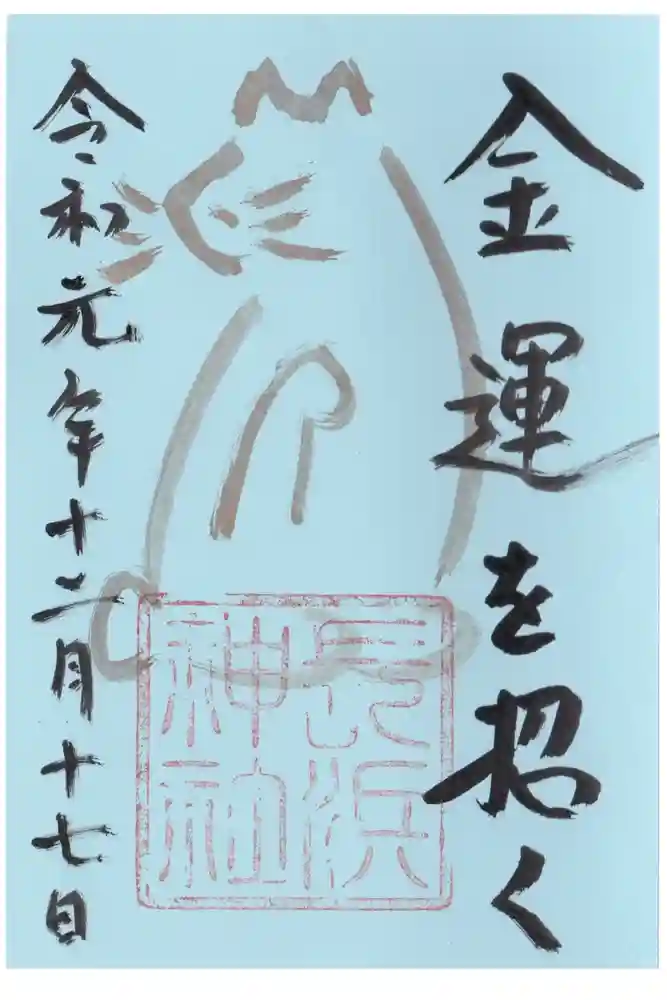 金運を招く
長浜
神社
令和元年十二月十七日